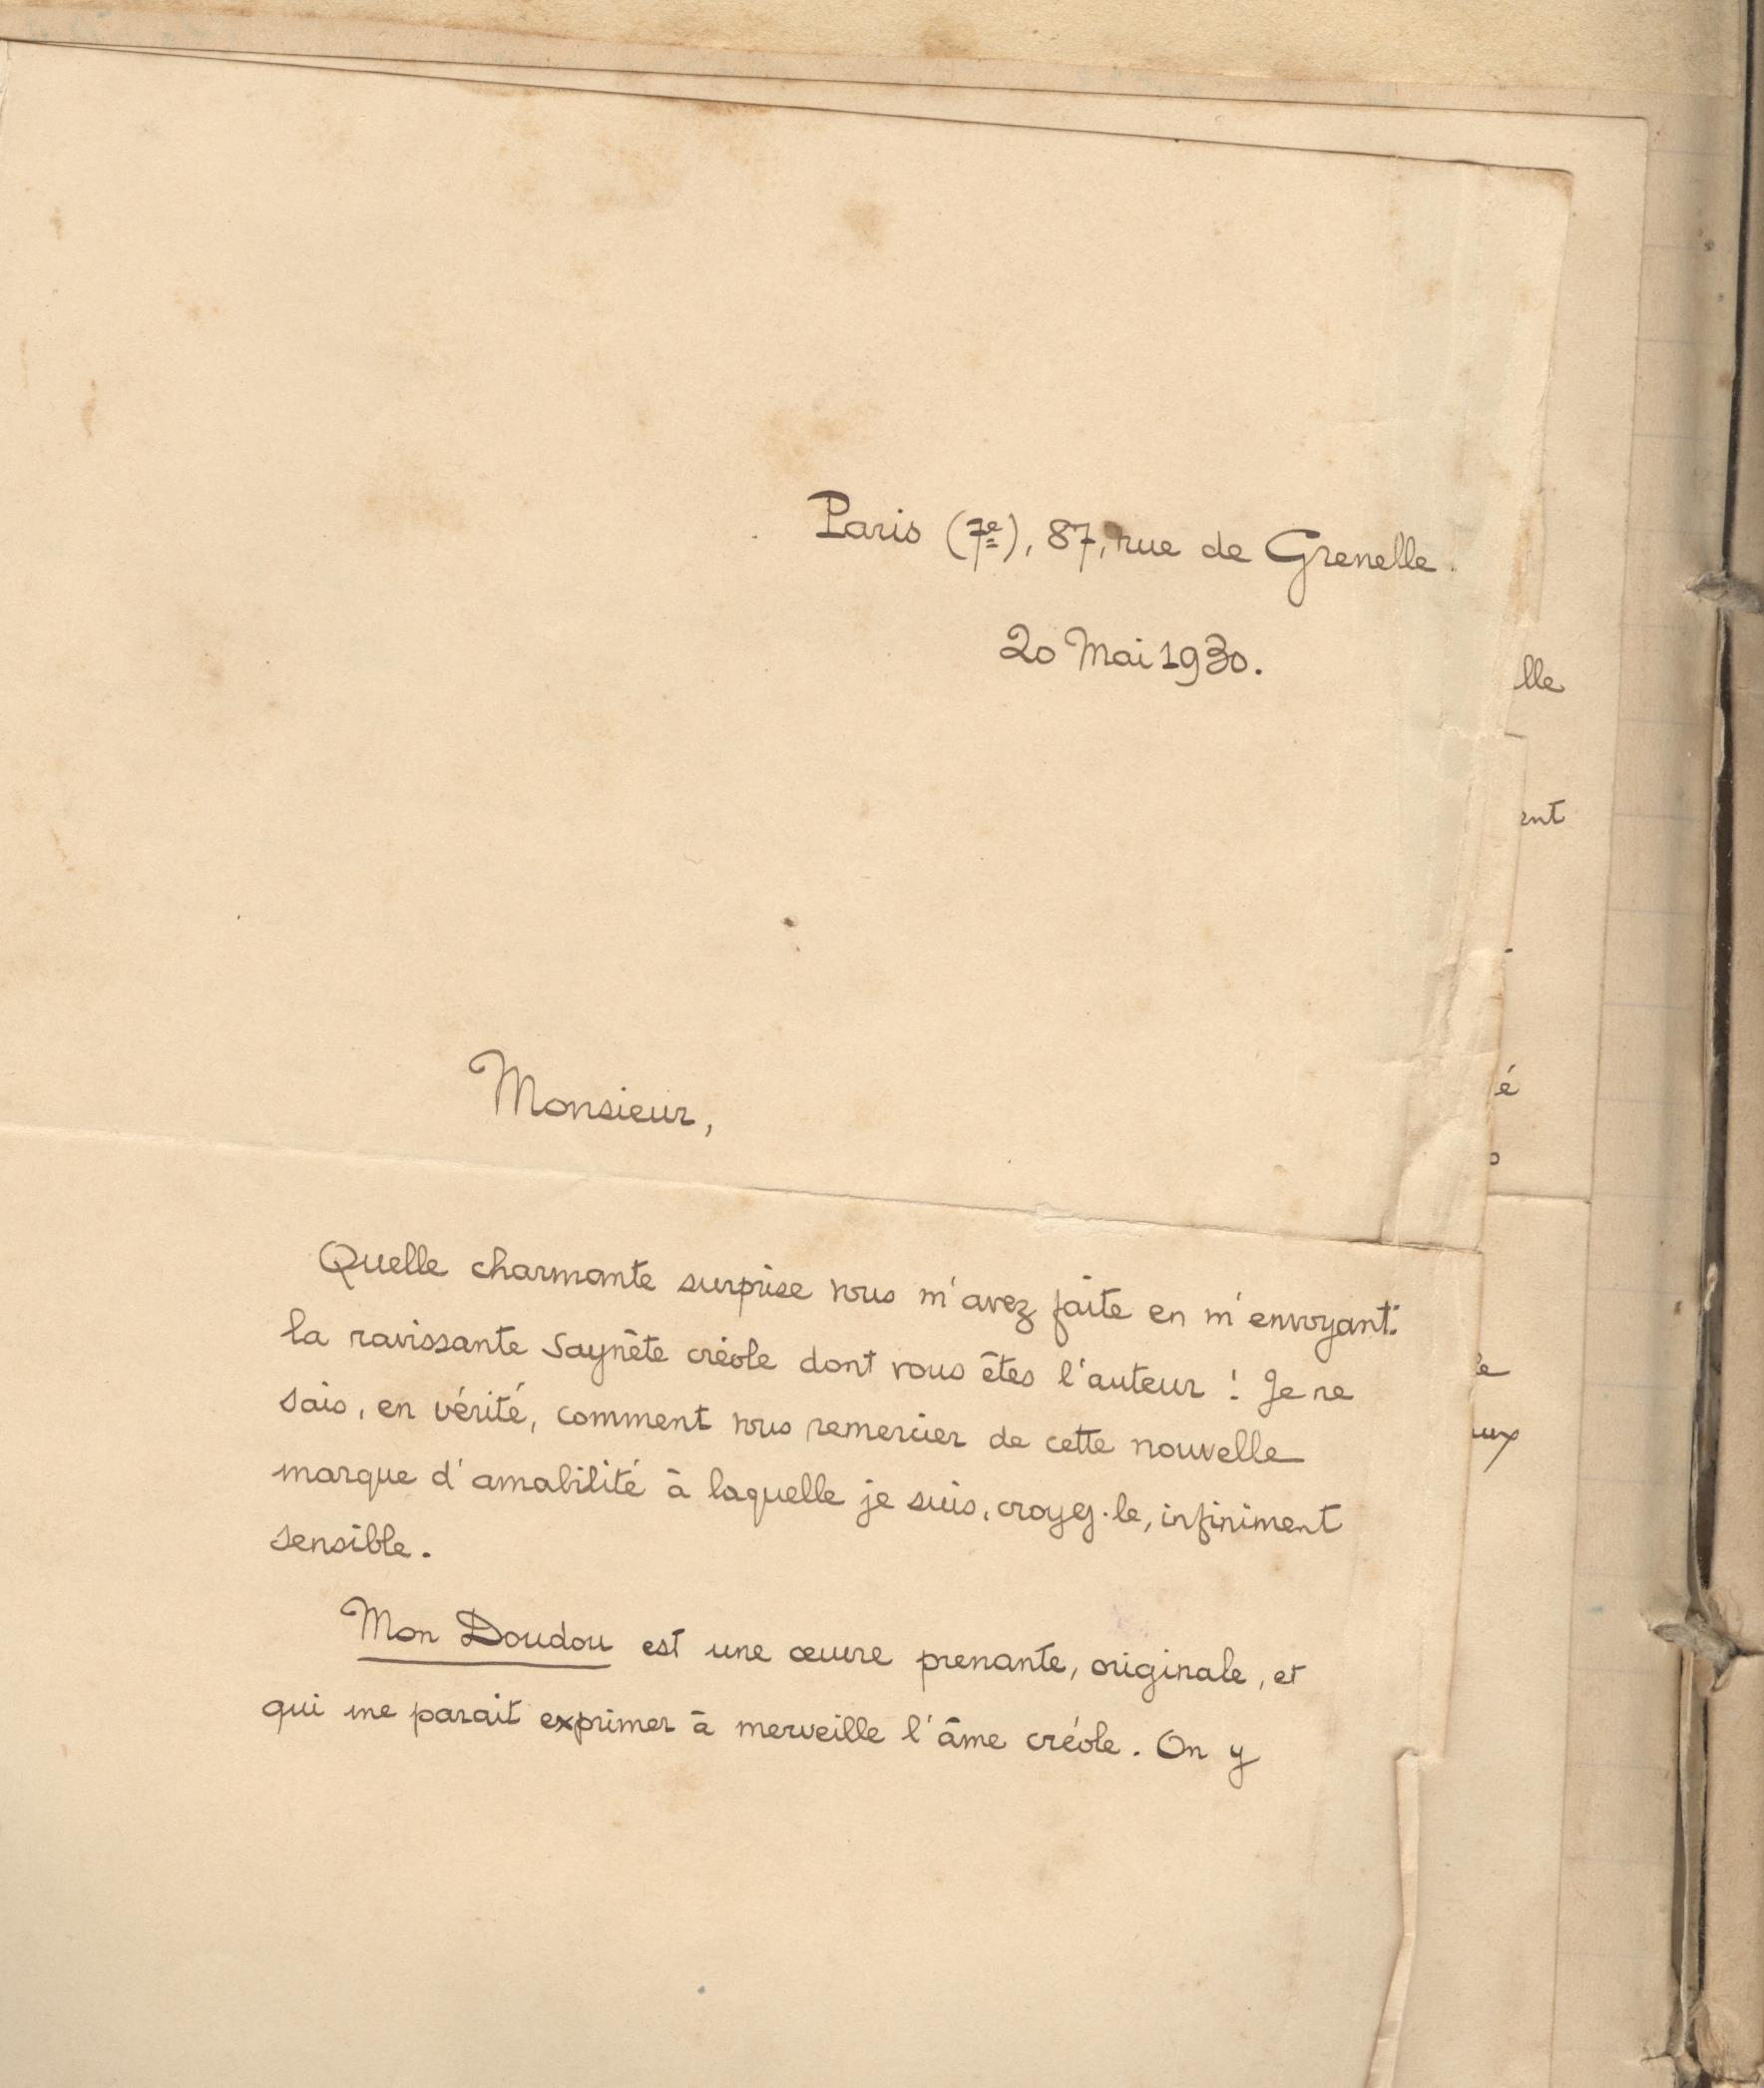 Paris (7e), 87, rue de Grenelle.
20 Mai 1930.
Monsieur,
Quelle charmante surprise vous m'avez faite en m'envoyant
la ravissante Saynète créole dont vous êtes l'auteur ! Je ne
sais, en vérité, comment vous remercier de cette nouvelle
marque d'amabilité à laquelle je suis, croyez-le, infiniment
sensible.
Mon Doudou est une œuvre prenante, originale, et
qui me parait exprimer à merveille l'âme créole. On y
lle
ent
é
le
ux